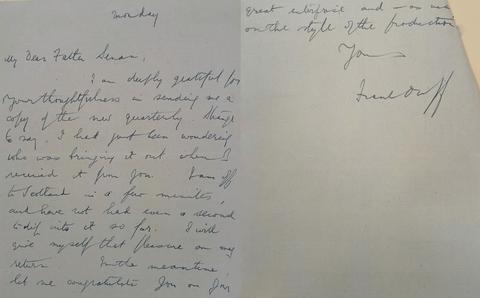 Monday
My Dear Father Senan,
I am deeply grateful for
your thoughtfulness in sending me a
copy of the new quarterly. Strange
to say, I had just been wondering
who was bringing it out when I
received it from you. I am off
to Scotland in a few minutes,
and have not had even a second
to dip into it so far. I will
give myself that pleasure on my
return. In the meantime,
let me congratulate you on your
great enterprise and – as
on the style of the production
Yours
Frank Duff